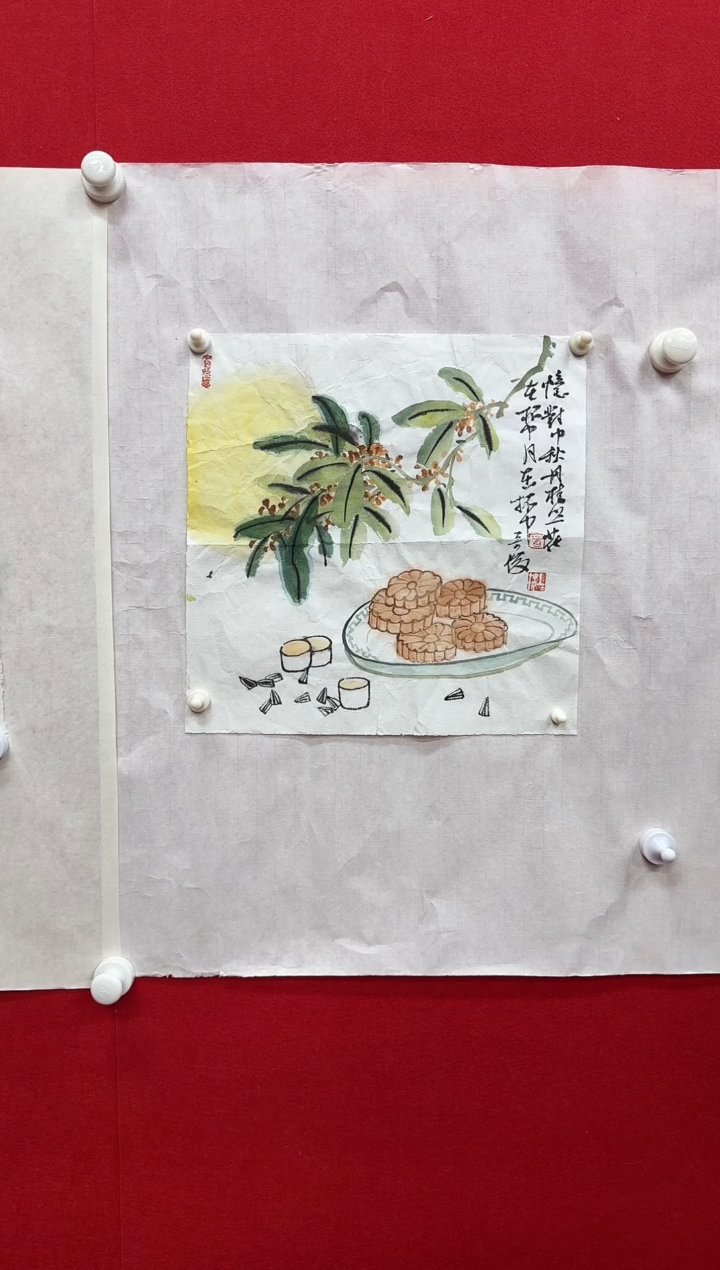 憶對中秋丹桂丛花
在杯中月在杯中